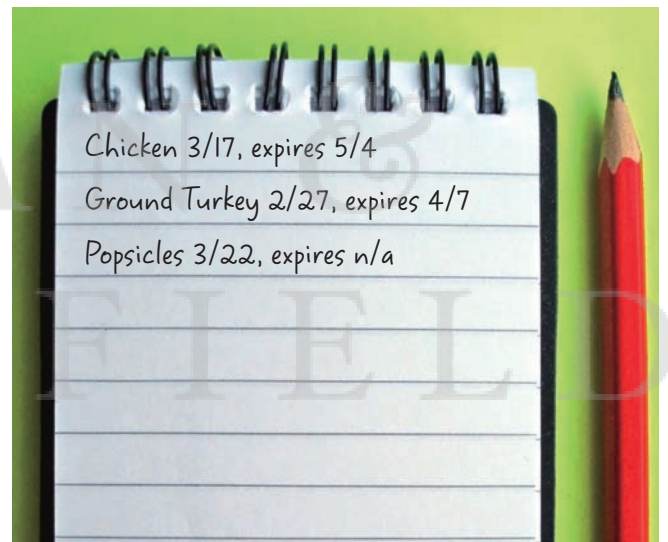 Chicken 3/17, expires 5/4
Ground Turkey 2/27, expires 4/7
Popsicles 3/22, expires n/a
AN &
FIELD